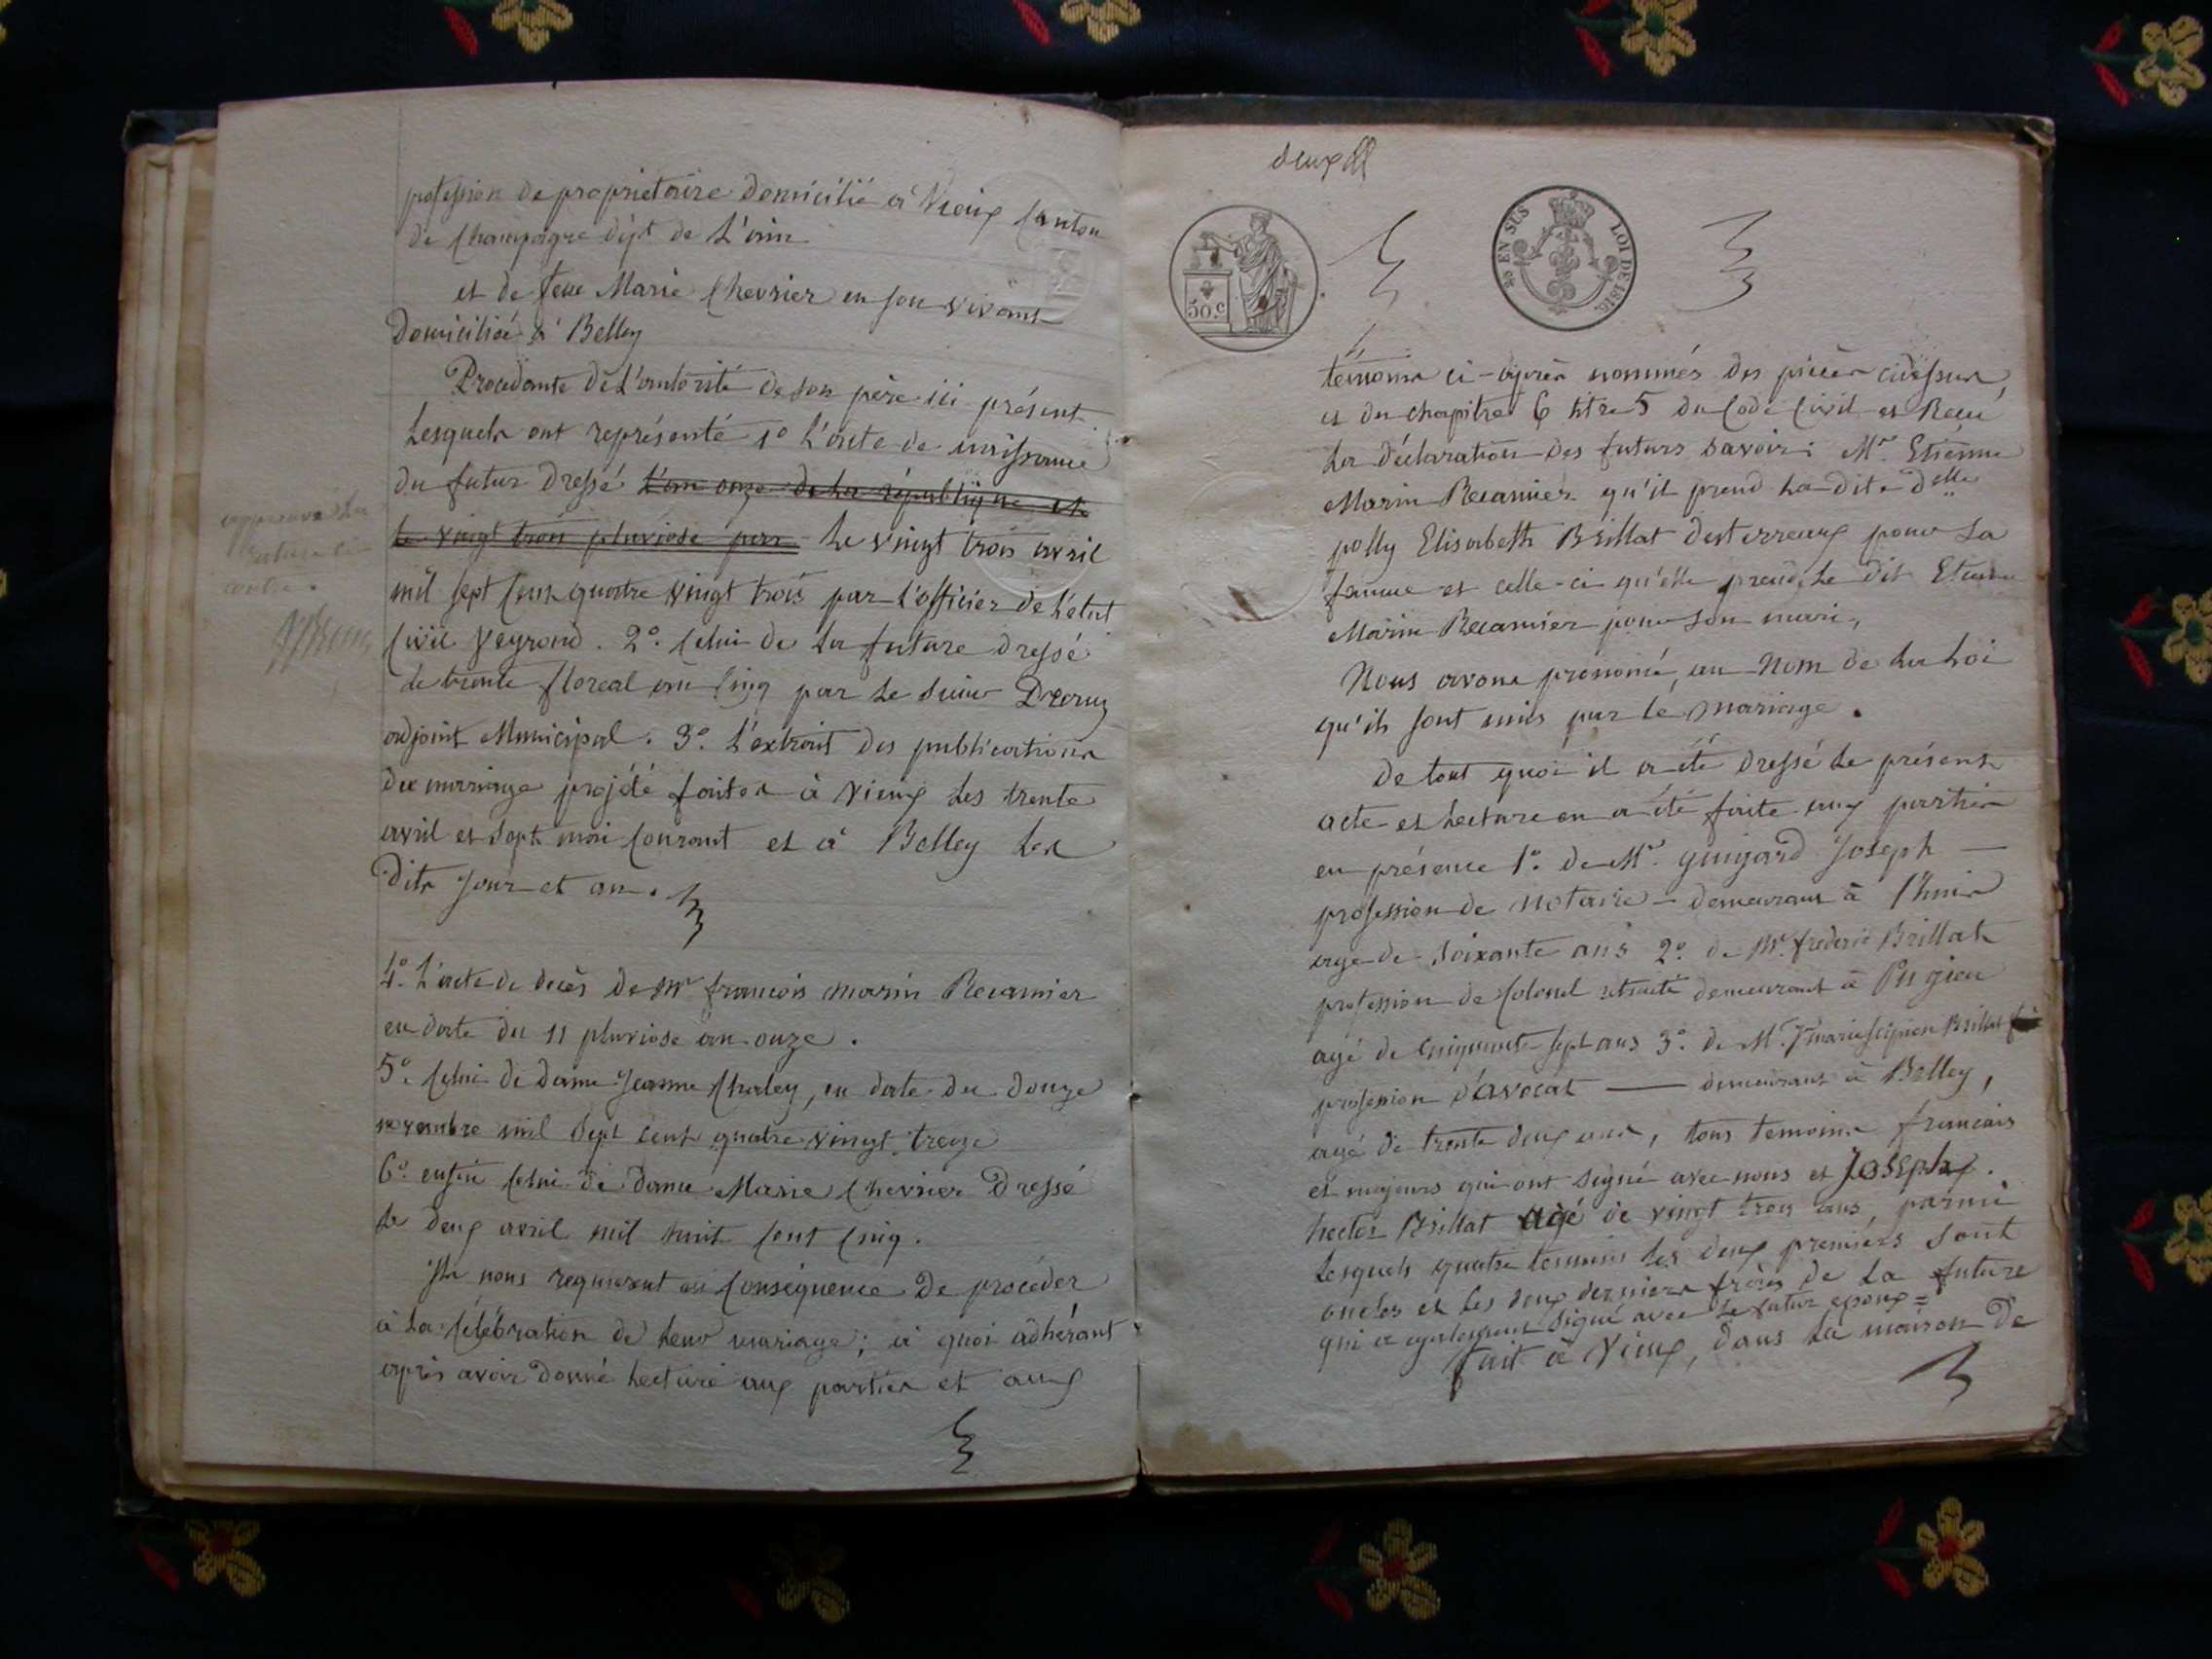 profession de propriétaire domicilié à Vieux Canton
de Champagne dépt de L'ain
et de feue Marie Chevrier en son vivant
Domiciliée à Belley
Procédante de L'autorité de son père ici présent
Lesquels ont représenté 1º L'acte de naissance
du futur Dressé L'an onze de la république et
le vingt trois pluviose par Le vingt trois avril
mil sept Cent quatre vingt trois par L'officier de L'état
Civil Veyrond. 2º. Celui de la future dressé
le trente floreal an Cinq par le Sieur
adjoint Municipal. 3º. L'extrait des publications
du mariage projété faites à Vieux les trente
avril et sept mai Courant et à Belley les
Dits Jour et an.
approuvé la
rature ci
contre.
4º. L'acte de decès de Mr françois marin Recamier
en date du 11 pluviose an onze.
5º. Celui de dame Jeanne Chaley, en date du douze
novembre mil Sept cent quatre vingt treize
6º. enfin Celui de dame Marie Chevrier Dressé
le deux avril mil huit Cent Cinq.
Ils nous requierent en Conséquence De procéder
à la Célébration de leur mariage; à quoi adhérant
après avoir donné lecture aux parties et aux
deux
50.c
EN SUS
LOI DE 1816
témoins ci-après nommés des pièces cidessus,
et du chapitre 6 titre 5 du Code Civil et Recu
La déclaration des futurs savoir: Mr. Etienne
Marin Recamier qu'il prend La dite Delle
polly Elisabeth Brillat desterreaux pour sa
femme et celle-ci qu'elle prend Le dit Etienne
Marin Recamier pour son mari,
Nous avons prénomé, au Nom de la Loi
qu'ils sont unis par le mariage.
De tout quoi il a été dressé Le présent
acte et Lecture en a été faite aux parties
en présence 1º. de Mr. guigard Joseph —
profession de Notaire – demeurant à
age de Soixante ans 2º. de Mr. frederic Brillat
profession de Colonel retraité demeurant à Pugieu
agé de Cinquante Sept ans 3º. de Mr. marie Scipion Brillat
profession d'avocat — demeurant à Belley,
agé de trente deux ans, tous temoins francais
et majeurs qui ont signé avec nous et Joseph
hector Brillat agé de vingt trois ans, parmi
Lesquels quatre temoins les deux premiers sont
oncles et les deux derniers frères de la future
qui a egalement signé avec le futur epoux =
fait à Vieux, dans la maison De